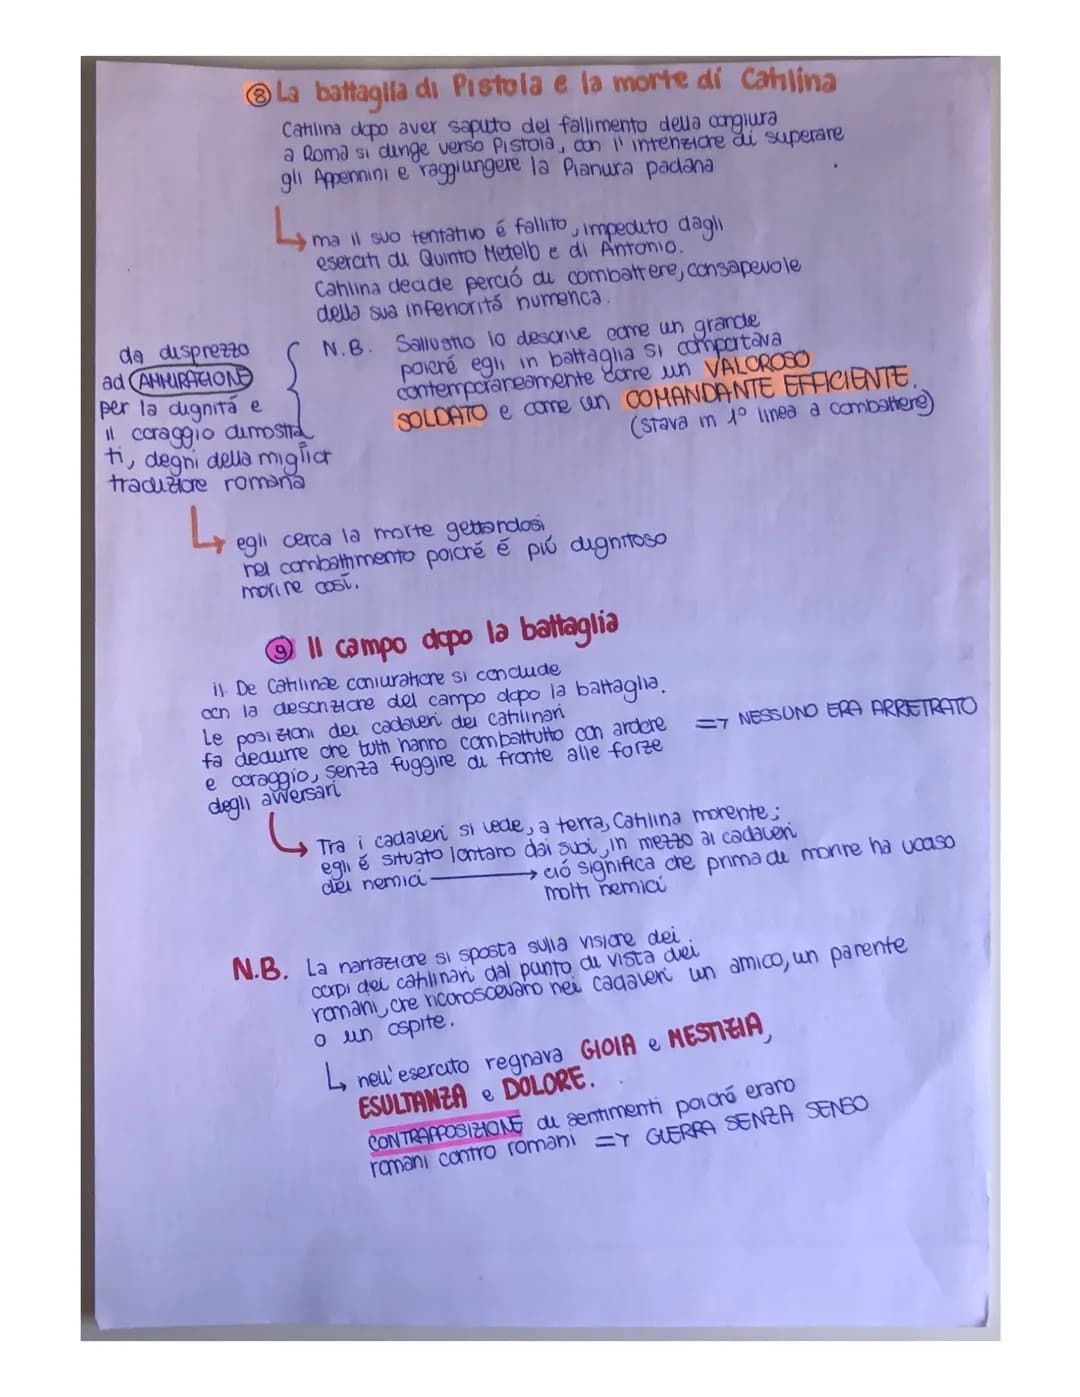 ⑧ La battaglia di Pistoia e la morte di Catilina
Catilina dopo aver saputo del fallimento della congiura
a Roma si dirige verso Pistoia, con l'intenzione di superare
gli Appennini e raggiungere la Pianura padana
ma il suo tentativo é fallito, impedito dagli
eserciti di Quinto Metello e di Antonio.
Catilina decide perció di combattere, consapevole
della sua inferioritá numerica.
N.B. Sallustio lo descrive come un grande
poiché egli in battaglia si comportava
contemporaneamente come un VALOROSO
SOLDATO e come un COMANDANTE EFFICIENTE.
(stava in 1° linea a combattere)
da disprezzo
ad AMMIRAZIONE
per la dignitá e
il coraggio dimostra
ti, degni della miglior
tradizione romana
egli cerca la morte gettandosi
nel combattimento poiché é piú dignitoso
morire cosí.
⑨ Il campo dopo la battaglia
il De Catilinae coniuratione si conclude
con la descrizione del campo dopo la battaglia.
Le posizioni dei cadaveri dei catilinari
fa dedurre che tutti hanno combattutto con ardore
e coraggio, senza fuggire di fronte alle forze
degli avversari
=> NESSUNO ERA ARRETRATO
Tra i cadaveri si vede, a terra, Catilina morente;
egli é situato lontano dai suoi, in mezzo ai cadaveri
dei nemici → ció significa che prima di morire ha ucciso
molti nemici
N.B. La narrazione si sposta sulla visione dei
corpi dei catilinari dal punto di vista dei
romani, che riconoscevano nei cadaveri un amico, un parente
o un ospite.
nell'esercito regnava GIOIA e MESTIZIA,
ESULTANZA e DOLORE.
CONTRAPPOSIZIONE di sentimenti poiché erano
romani contro romani => GUERRA SENZA SENSO